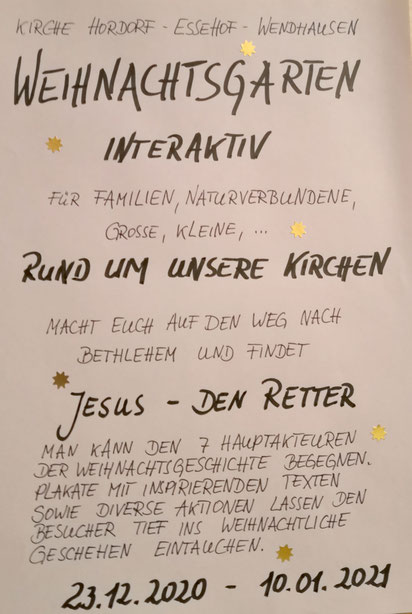 KIRCHE HORDORF - ESSEHOF - WENDHAUSEN
WEIHNACHTSGARTEN
INTERAKTIV
FÜR FAMILIEN, NATURVERBUNDENE,
GROSSE, KLEINE, ...
RUND UM UNSERE KIRCHEN
MACHT EUCH AUF DEN WEG NACH
BETHLEHEM UND FINDET
JESUS - DEN RETTER
MAN KANN DEN 7 HAUPTAKTEUREN
DER WEIHNACHTSGESCHICHTE BEGEGNEN.
PLAKATE MIT INSPIRIERENDEN TEXTEN
SOWIE DIVERSE AKTIONEN LASSEN DEN
BESUCHER TIEF INS WEIHNACHTLICHE
GESCHEHEN EINTAUCHEN.
23.12.2020 - 10.01.2021